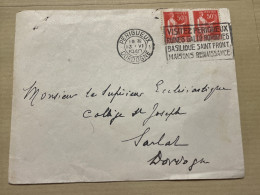 PERIGUEUX
DORDOGNE
VISITEZ PERIGUEUX
RUINES GALLO-ROMAINES
BASILIQUE SAINT FRONT
MAISONS RENAISSANCE
Monsieur le Supérieur Ecclésiastique
Collège St Joseph
Sarlat
Dordogne